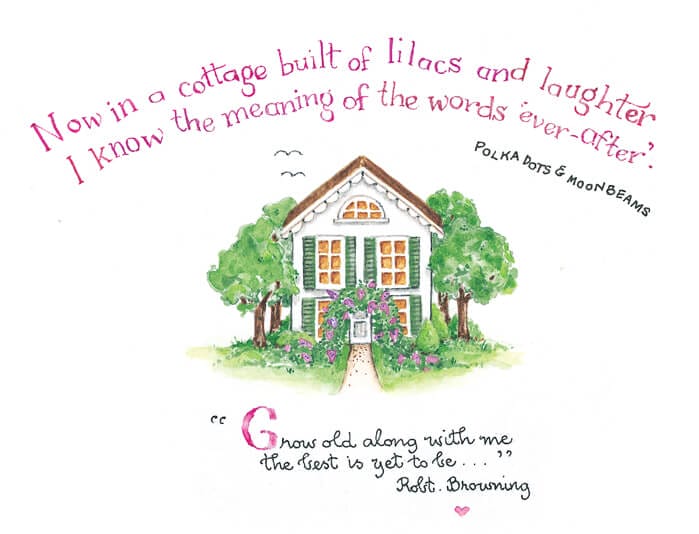 Now in a cottage built of lilacs and laughter
I know the meaning of the words 'ever-after'.
POLKA DOTS & MOONBEAMS
“Grow old along with me
the best is yet to be . . . ”
Robt. Browning